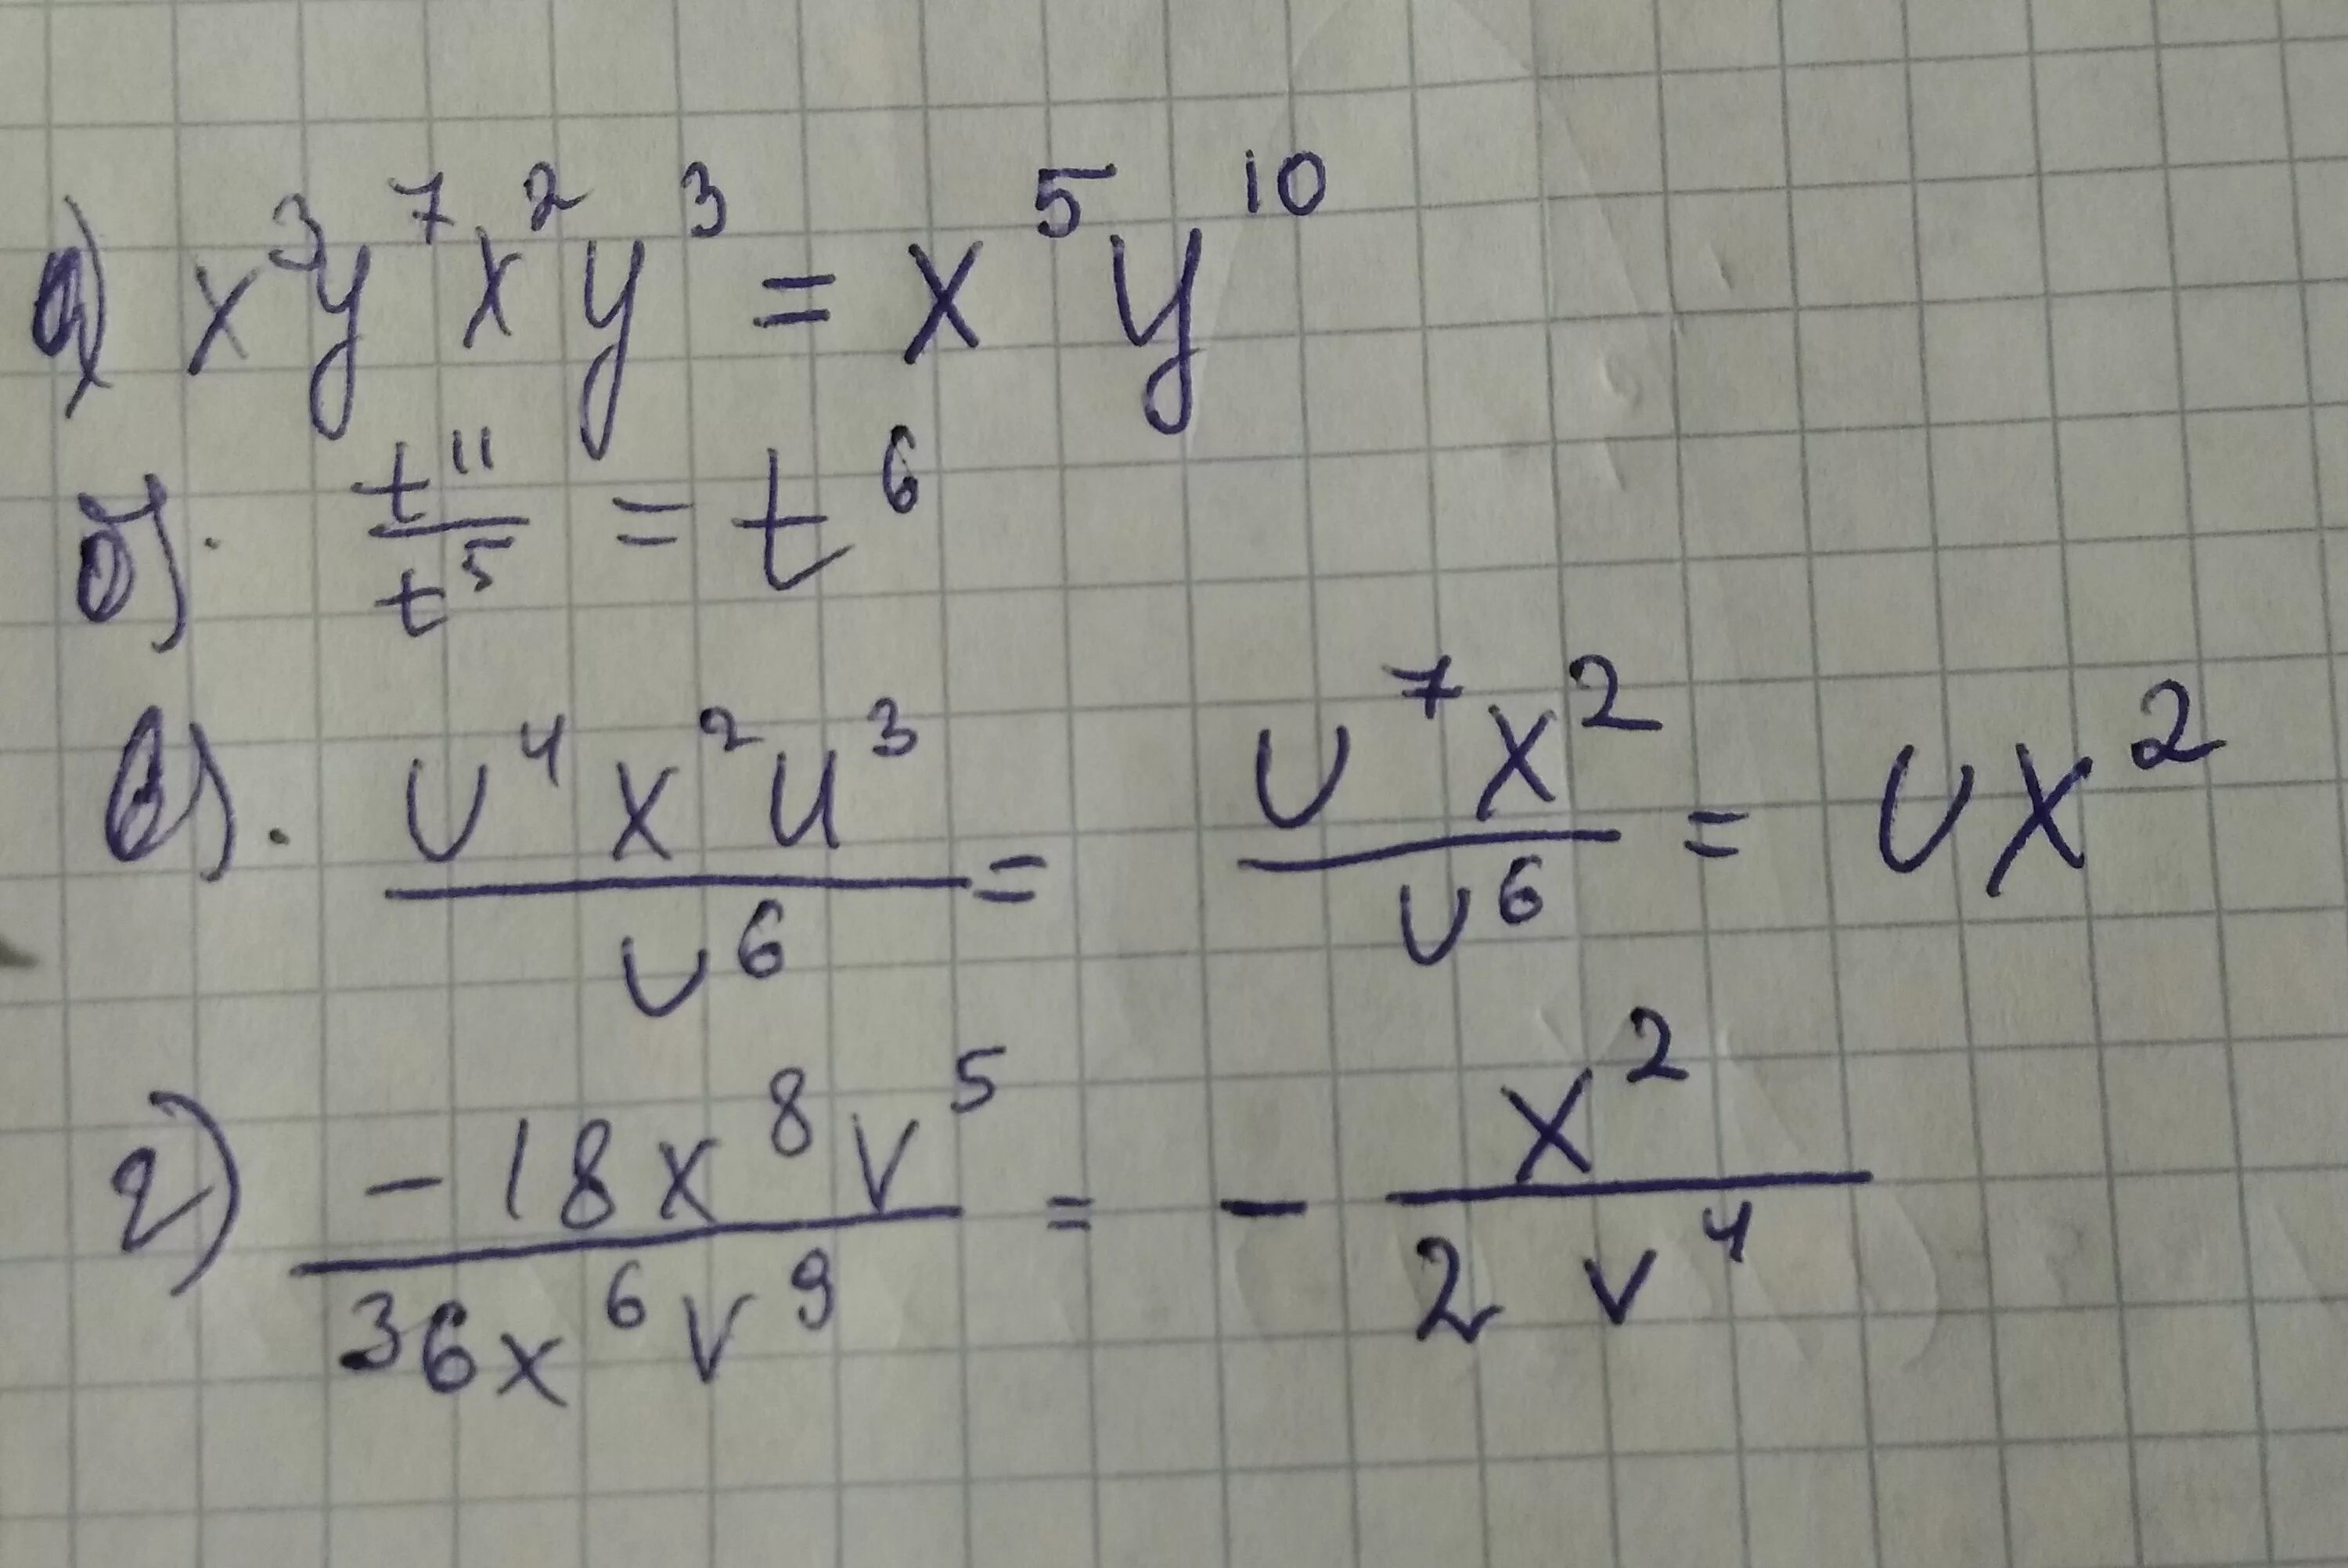 а) x³y⁷x²y³ = x⁵y¹⁰
б). t¹¹/t⁵ = t⁶
в). u⁴x²u³/u⁶ = u⁷x²/u⁶ = ux²
г) -18x⁸v⁵/36x⁶v⁹ = - x²/2v⁴